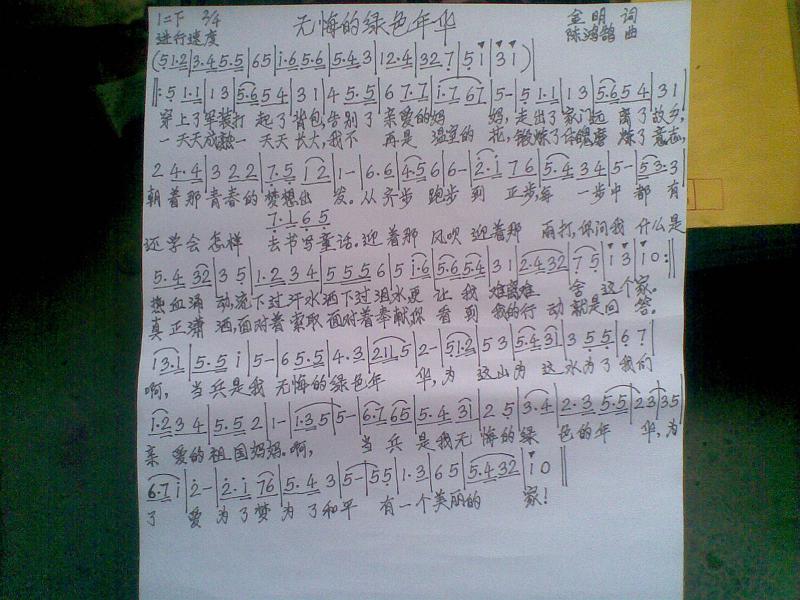 1=下 3/4 无悔的绿色年华 金明 词
进行速度 陈鸿鹄 曲
(51·2|3·45·5|65|i·65·6|5·43|12·4|327|5i|3i)|
‖:51·1|13|5·654|31|45·5|67·7|i·767|5-|51·1|13|5·654|31|
穿上了军装打起了背包,告别了亲爱的妈 妈,走出了家门远离了故乡,
一天天成熟一天天长大,我不再是温室的花,锻炼了体魄磨炼了意志,
24·4|322|7·512|1-|6·6|4·56|6-|2·i|76|5·434|5-|53·3
朝着那青春的梦想出发。从齐步跑步到正步,每一步中都有
7·165
还学会怎样 去书写童话。迎着那风吹迎着那雨打,你问我什么是
5·432|35|1·234|5556|5i·6|5·65·4|31|2·432|75|i3|i0:‖
热血涌动,流下过汗水洒下过泪水更让我难离难舍这个家。
真正潇洒,面对着索取面对着奉献你看到我的行动就是回答。
i3·1|5·5i|5-|65·5|4·3|2115|2-|51·2|53|5·431|355|67|
啊,当兵是我无悔的绿色年华,为这山为这水为了我们
1·234|5·52|1-|1·35|5-|6·765|5·431|25|3·4|2·35·5|23|35
亲爱的祖国妈妈。啊,当兵是我无悔的绿色的年华,为
6·7i|2-|2·i76|5·43|5-|55|1·3|65|5·432|i0‖
了爱为了梦为了和平有一个美丽的家!